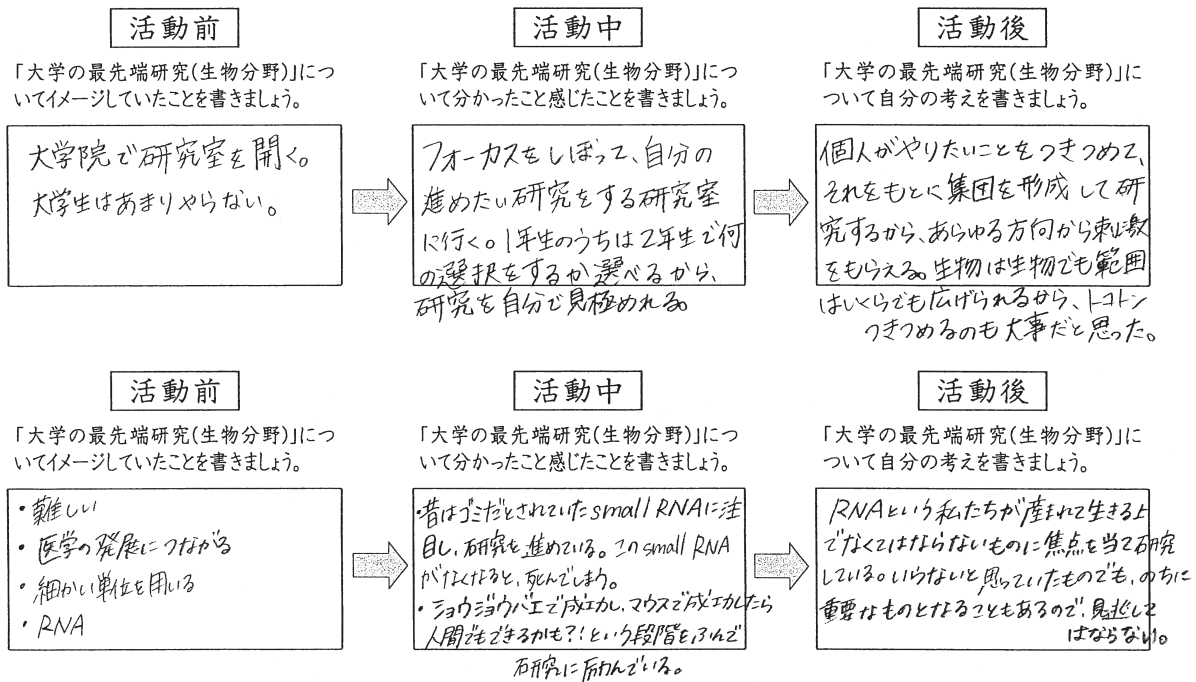 活動前
「大学の最先端研究(生物分野)」につ
いてイメージしていたことを書きましょう。
大学院で研究室を開く。
大学生はあまりやらない。
活動中
「大学の最先端研究(生物分野)」につ
いて分かったこと感じたことを書きましょう。
フォーカスをしぼって、自分の
進めたい研究をする研究室
に行く。1年生のうちは2年生で何
の選択をするか選べるから、
研究を自分で見極めれる。
活動後
「大学の最先端研究(生物分野)」に
ついて自分の考えを書きましょう。
個人がやりたいことをつきつめて、
それをもとに集団を形成して研
究するから、あらゆる方向から刺激
をもらえる。生物は生物でも範囲
はいくらでも広げられるから、トコトン
つきつめるのも大事だと思った。
活動前
「大学の最先端研究(生物分野)」につ
いてイメージしていたことを書きましょう。
・難しい
・医学の発展につながる
・細かい単位を用いる
・RNA
活動中
「大学の最先端研究(生物分野)」につ
いて分かったこと感じたことを書きましょう。
・昔はゴミだとされていたsmall RNAに注
目し、研究を進めている。このsmall RNA
がなくなると、死んでしまう。
・ショウジョウバエで成功し、マウスで成功したら
人間でもできるかも?!という段階をふんで
研究に励んでいる。
活動後
「大学の最先端研究(生物分野)」に
ついて自分の考えを書きましょう。
RNAという私たちが産まれて生きる上
でなくてはならないものに焦点を当て研究
している。いらないと思っていたものでも、のちに
重要なものとなることもあるので、見逃して
はならない。